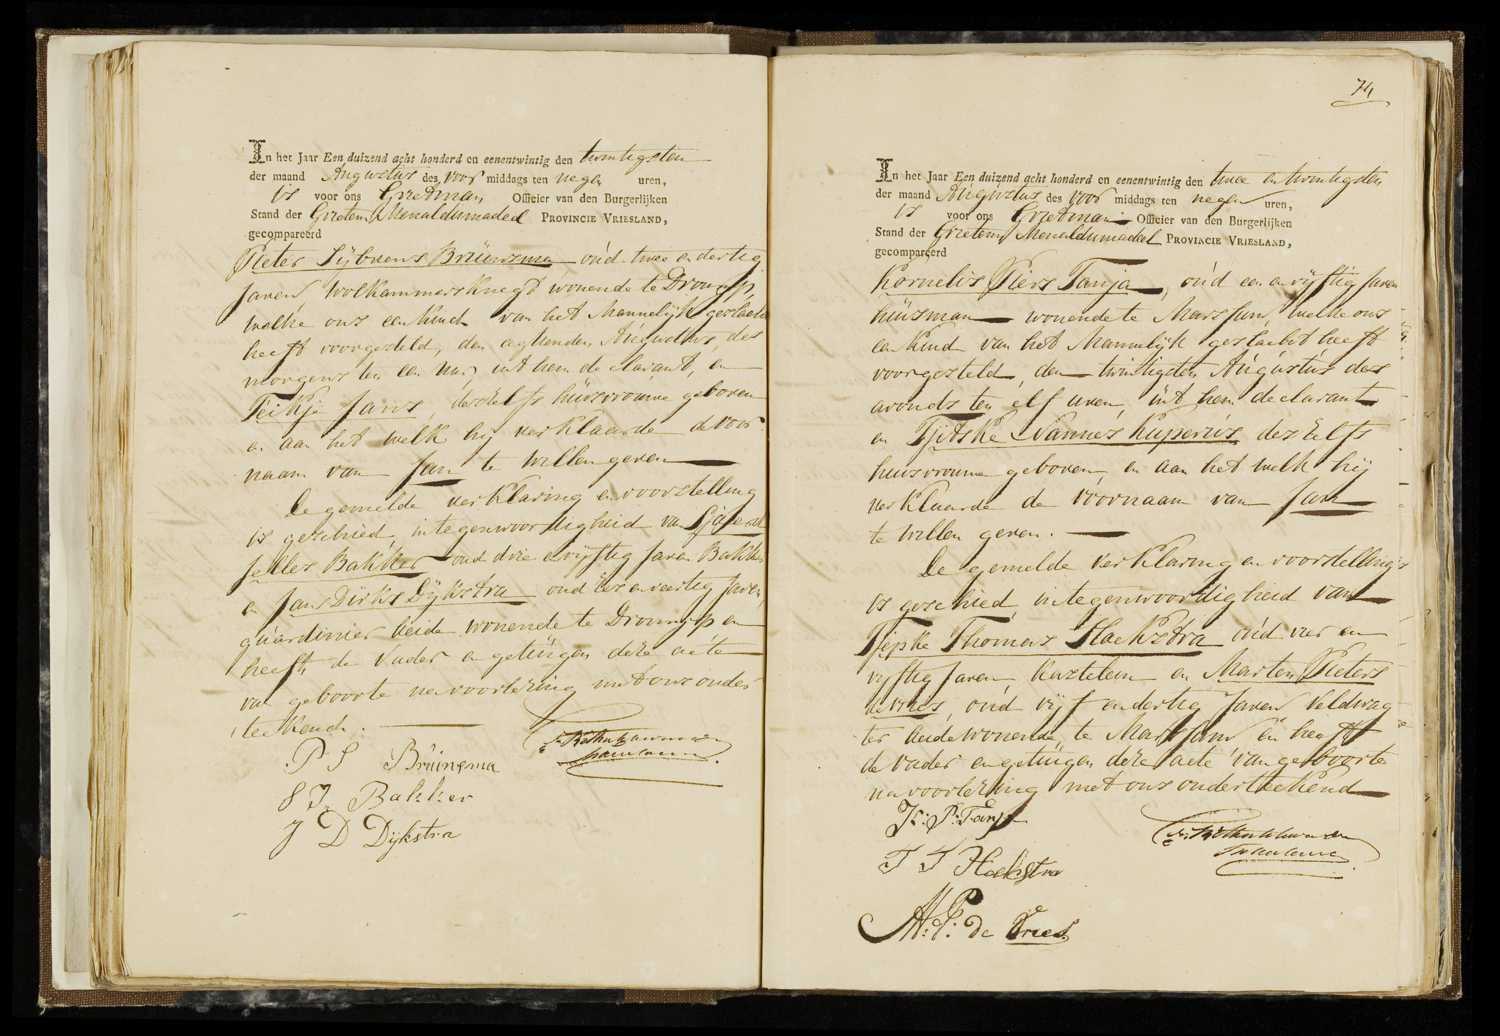 In het Jaar Een duizend acht honderd en eenentwintig den twintigsten
der maand Augustus des voor middags ten negen uren,
is voor ons Grietman Officier van den Burgerlijken
Stand der Grietenij Menaldumadeel PROVINCIE VRIESLAND,
gecompareerd
Pieter Sijbrens Bruinsma oud twee en dertig
Jaren wolkammersknegt wonende te Dronrijp
welke ons een kind van het Mannelijk geslacht
heeft voorgesteld, den agtienden Augustus, des
morgens ten een uur uit hem declarant, en
Teikje Jans, deszelfs huisvrouwe geboren
en aan het welk hij verklaarde de voor
naam van Jan te willen geven
De gemelde verklaring en voorstelling
is geschied, in tegenwoordigheid van
Jelles Bakker oud drie en vijftig Jaren Bakker
en Jans Dirks Dijkstra oud en veertig Jaren,
guardenier beide wonende te Dronrijp en
heeft de vader en getuigen deze acte
van geboorte na voorlezing met ons onder
teekend.
P S Bruinsma
S J Bakker
J D Dijkstra
74
In het Jaar Een duizend acht honderd en eenentwintig den twee en twintigsten
der maand Augustus des voor middags ten negen uren,
is voor ons Grietman Officier van den Burgerlijken
Stand der Grietenij Menaldumadeel PROVINCIE VRIESLAND,
gecompareerd
Kornelis Piers Tanja, oud een en vijftig Jaren
huisman wonende te Marssum, welke ons
een kind van het Mannelijk geslacht heeft
voorgesteld, den twintigsten Augustus des
avonds ten elf uren, uit hem declarant
en Tjitske Nannes Kuperus deszelfs
huisvrouwe geboren, en aan het welk hij
verklaarde de voornaam van Jan
te willen geven.
De gemelde verklaring en voorstelling
is geschied, in tegenwoordigheid van
Tjepke Thomas Haekstra oud vier en
vijftig Jaren, kastelein en Marten Pieters
de Vries, oud vijf en dertig Jaren veldwag
ter beide wonende te Marssum en heeft
de vader en getuigen deze acte van geboorte
na voorlezing met ons onderteekend
K: P: Tanja
T T Haekstra
M: P: de Vries